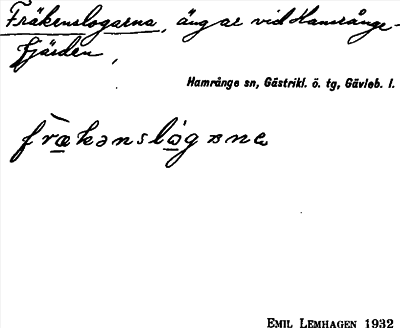 Fräkenslogarna, ängar vid Hamrånge-
fjärden,
Hamrånge sn, Gästrikl. ö. tg, Gävleb. l.
fræ̀kənslògɐnɐ
EMIL LEMHAGEN 1932